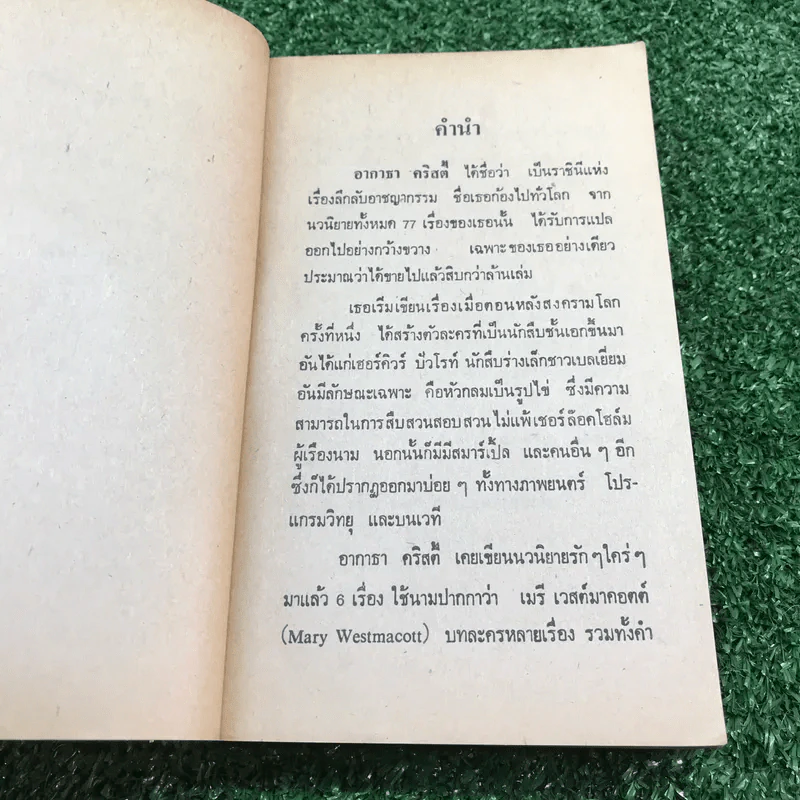 คำนำ
อากาธา คริสตี้ ได้ชื่อว่า เป็นราชินีแห่ง
เรื่องลึกลับอาชญากรรม ชื่อเธอก้องไปทั่วโลก จาก
นวนิยายทั้งหมด 77 เรื่องของเธอนั้น ได้รับการแปล
ออกไปอย่างกว้างขวาง เฉพาะของเธออย่างเดียว
ประมาณว่าได้ขายไปแล้วสิบกว่าล้านเล่ม
เธอเริ่มเขียนเรื่องเมื่อตอนหลังสงครามโลก
ครั้งที่หนึ่ง ได้สร้างตัวละครที่เป็นนักสืบชั้นเอกขึ้นมา
อันได้แก่เฮอร์คิวร์ ปัวโรท์ นักสืบร่างเล็กชาวเบลเยี่ยม
อันมีลักษณะเฉพาะ คือหัวกลมเป็นรูปไข่ ซึ่งมีความ
สามารถในการสืบสวนสอบสวนไม่แพ้เชอร์ล๊อคโฮล์ม
ผู้เรืองนาม นอกนั้นก็มีมีสมาร์เปิ้ล และคนอื่น ๆ อีก
ซึ่งก็ได้ปรากฏออกมาบ่อย ๆ ทั้งทางภาพยนตร์ โปร-
แกรมวิทยุ และบนเวที
อากาธา คริสตี้ เคยเขียนนวนิยายรัก ๆ ใคร่ ๆ
มาแล้ว 6 เรื่อง ใช้นามปากกาว่า เมรี เวสต์มาคอตต์
(Mary Westmacott) บทละครหลายเรื่อง รวมทั้งคำ